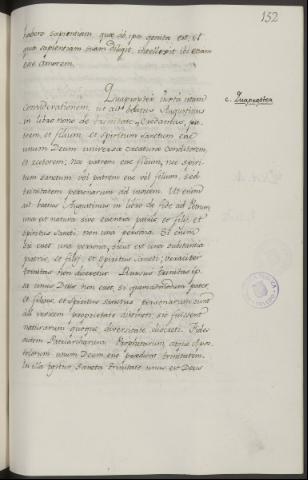 152
habere sapientiam, quæ de ipso genita est, et
qua sapientiam suam diligit, intellexit ibi etiam
esse amorem.
c. Quapropter
Quapropter juxta istam
considerationem, ut ait beatus Augustinus
in libro primo de Trinitate, Credamus, pa-
trem, et filium, et spiritum sanctum esse
unum Deum universæ creaturæ Conditorem,
et rectorem; nec patrem esse filium, nec spiri-
tum sanctum vel patrem esse vel filium, sed
trinitatem personarum ad invicem. Ut enim
ait beatus Augustinus in libro de fide ad Petrum
una est natura sive essentia patris, et filij, et
spiritus sancti, non una persona. Si enim
sic esset una persona, sicut est una substantia
patris, et filij, et spiritus sancti; veraciter
trinitas non diceretur. Rursus trinitas ip-
sa unus Deus non esset, si quemadmodum pater,
et filius, et spiritus sanctus personarum sunt
ab invicem proprietate distincti, sic fuissent
naturarum quoque diversitate discreti. Fides
autem Patriarcharum, Prophetarum, atque Apos-
tolorum unum Deum esse prædicat trinitatem.
In illa igitur Sancta trinitate unus est Deus